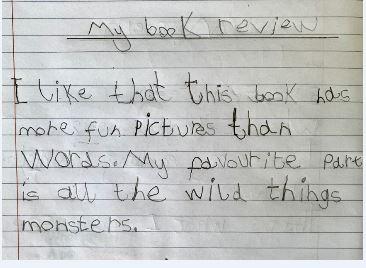 My book review
I like that this book has
more fun pictures than
words. My favourite part
is all the wild things
monsters.